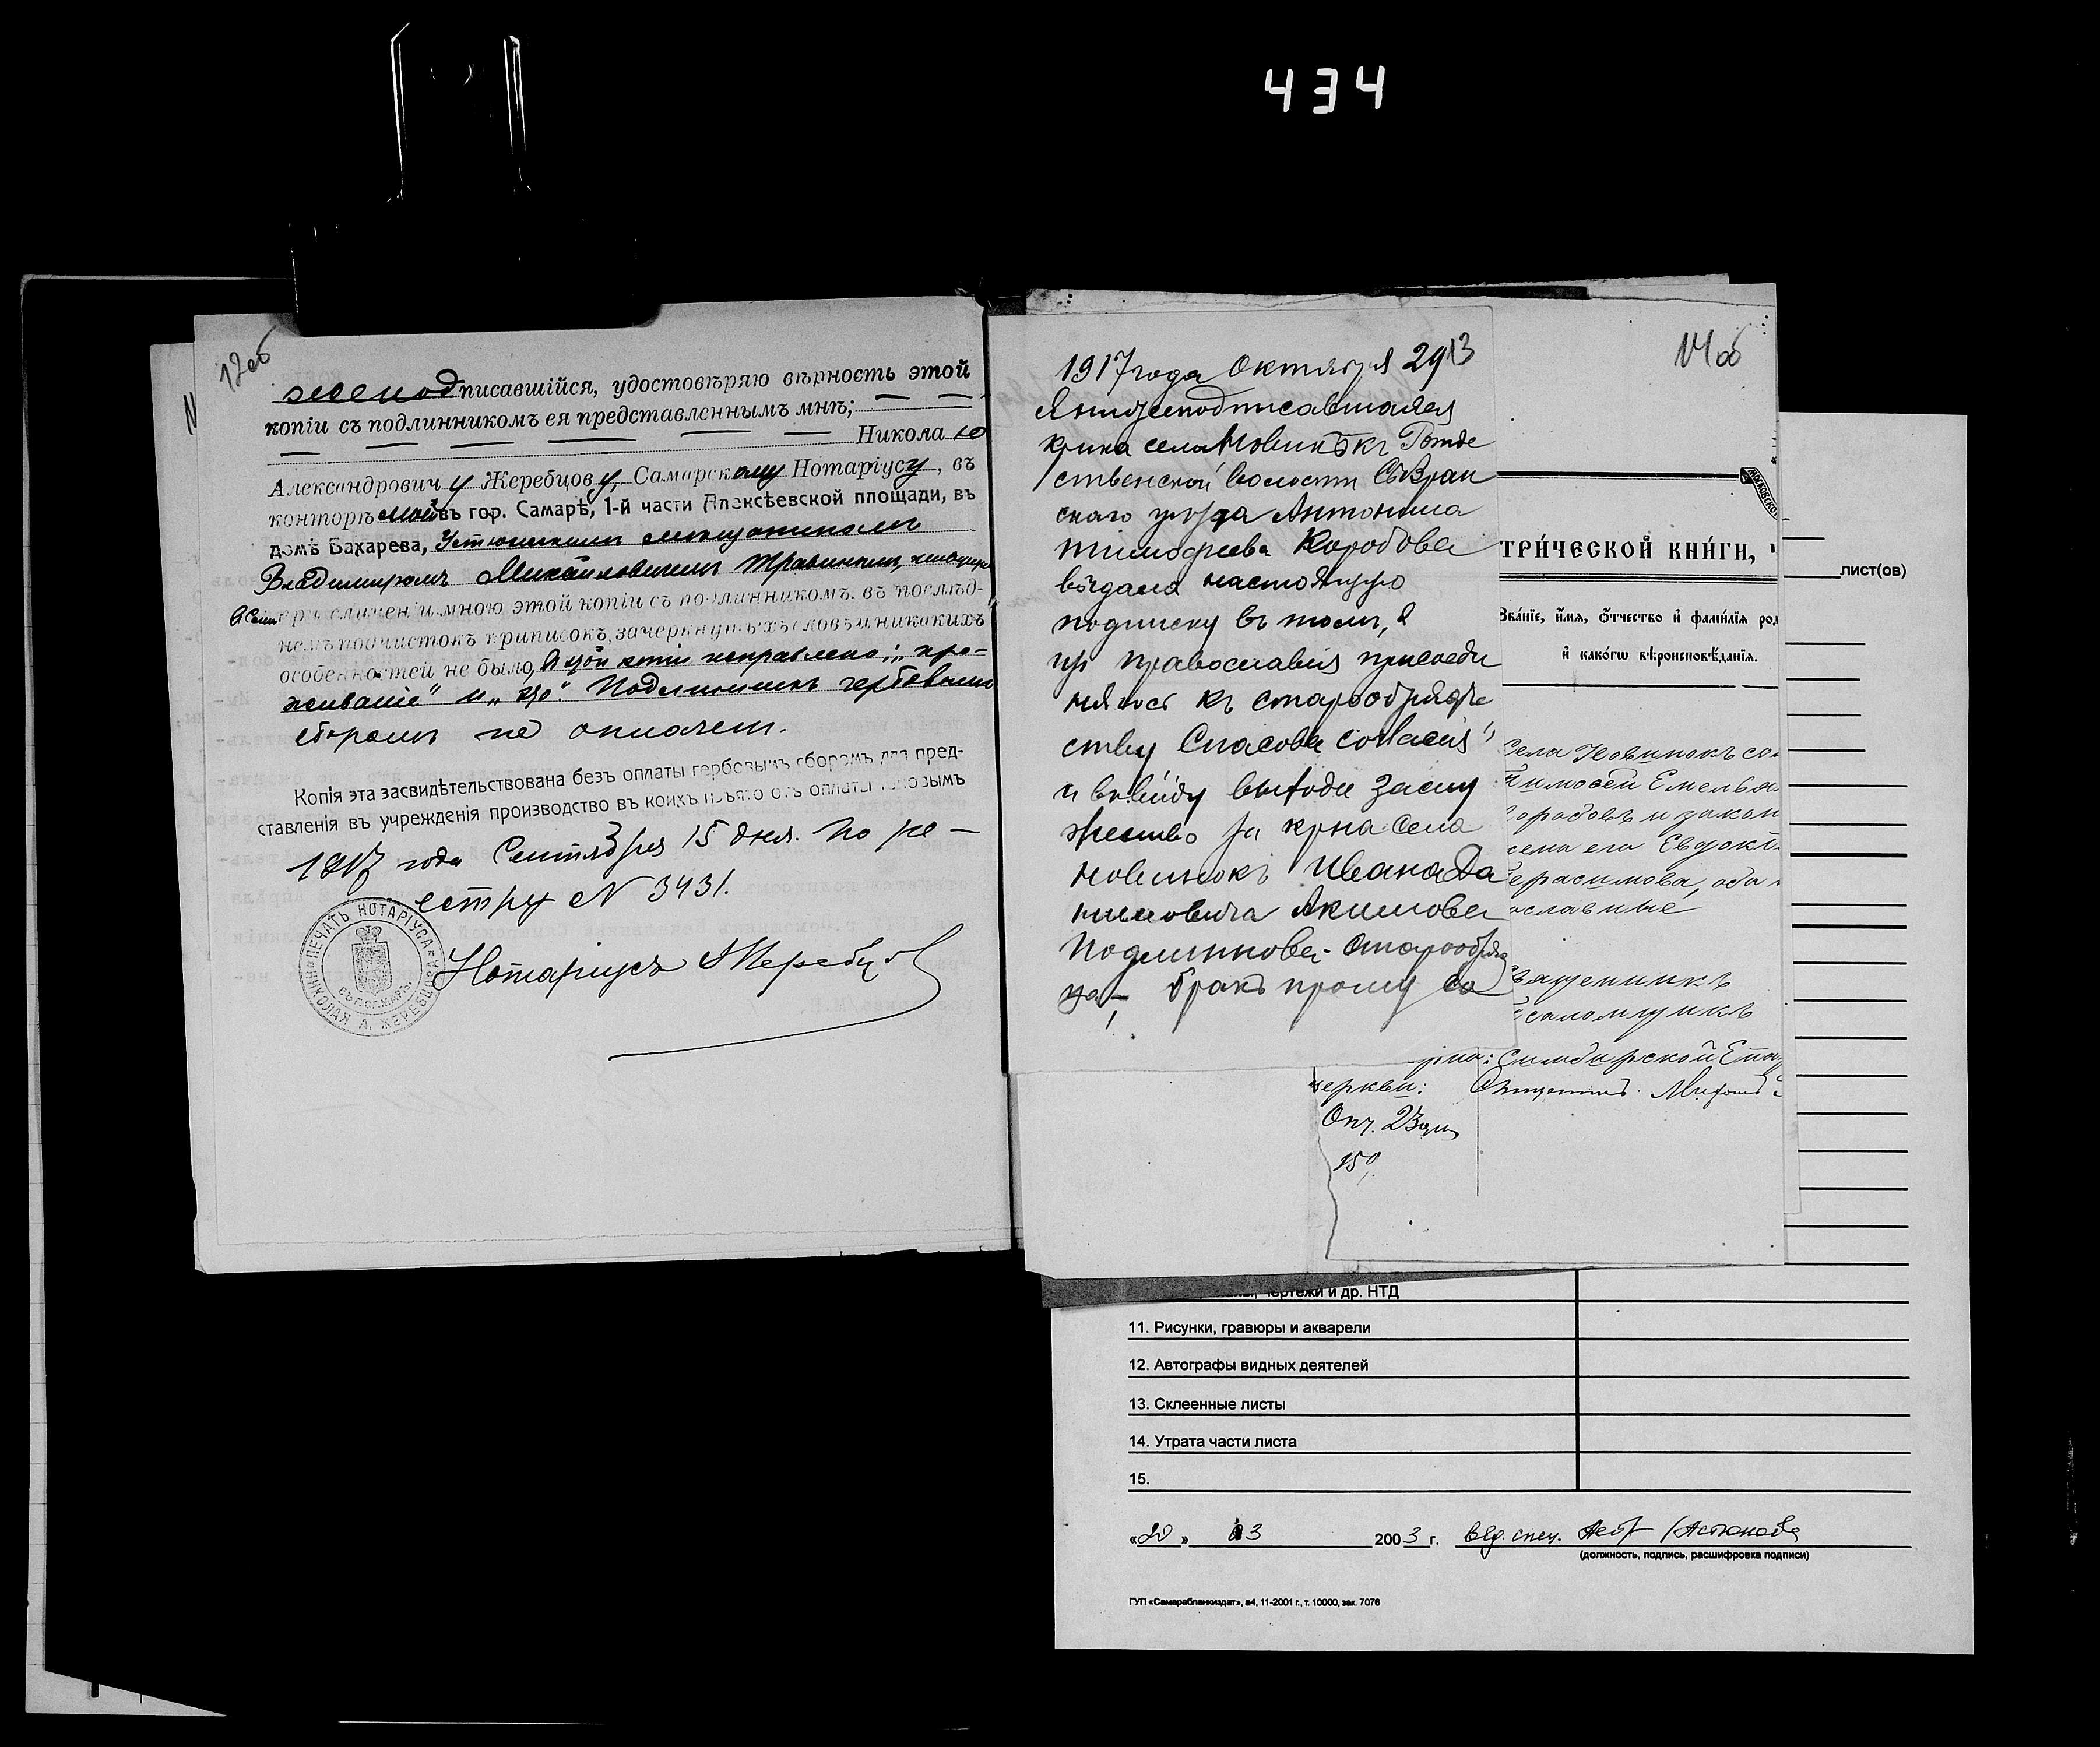 434
12об
жеподписавшійся, удостовѣряю вѣрность этой
копіи съ подлинникомъ ея представленнымъ мнѣ;
Никола ю
Александрович у Жеребцов у, Самарскому Нотаріусу, въ
конторѣ моей въ гор. Самарѣ, 1-й части Алексѣевской площади, въ
домѣ Бахарева, Устюжскимъ мещаниномъ
Владимиромъ Михайловичемъ Травинымъ,
при сличеніи мною этой копіи съ подлинникомъ, въ послѣд-
немъ подчистокъ приписокъ, зачеркнутыхъ словъ и никакихъ
особенностей не было, В этой копіи исправлено: „про-
живаніе" и „що". Подлинникъ гербовымъ
сборомъ не оплачен.
Копія эта засвидѣтельствована безъ оплаты гербовымъ сборомъ для пред-
ставленія въ учрежденія производство въ коихъ изъято отъ оплаты таковымъ
1917 года Сентября 15 дня. По ре-
естру N 3431.
Нотаріусъ Жеребцов
ПЕЧАТЬ НОТАРІУСА НИКОЛАЯ А. ЖЕРЕБЦОВА
ВЪ Г. САМАРѢ
14об
1917 года Октября 29 13
Я нижеподписавшаяся
крнка села Новинокъ Рожде
ственской волости Сызран
скаго уѣзда Антонина
Тимофеева Коробова
выдала настоящую
подписку въ томъ, я
из православия присоеди
няюсь къ старообрядче
ству Спасова согласия
и в виду выхода заму
жество за крна села
новинокъ Ивана Да
ниловича Акимова
Подлинкова - старообряд
ца, - бракъ прошу со
МОСКОВСКО
ТРИ́ЧЕСКОЙ КНИ́ГИ,
Зва́ніе, и́мя, о́тчество и фами́лія род
и како́гѡ вѣроисповѣ́данія.
Села Новинокъ со
Тимофей Емелья
Коробовъ и закон
жена его Евдокі
Герасимова, оба п
ославные
Священникъ
Псаломщикъ
Симбирской Епа
церкви: Священникъ
ЛИСТ(ОВ)
чертежи и др. НТД
11. Рисунки, гравюры и акварели
12. Автографы видных деятелей
13. Склеенные листы
14. Утрата части листа
15.
«20» 03 2003 г. вед. спец.
(должность, подпись, расшифровка подписи)
ГУП «Самарабланкиздат», а4, 11-2001 г., т. 10000, зак. 7076